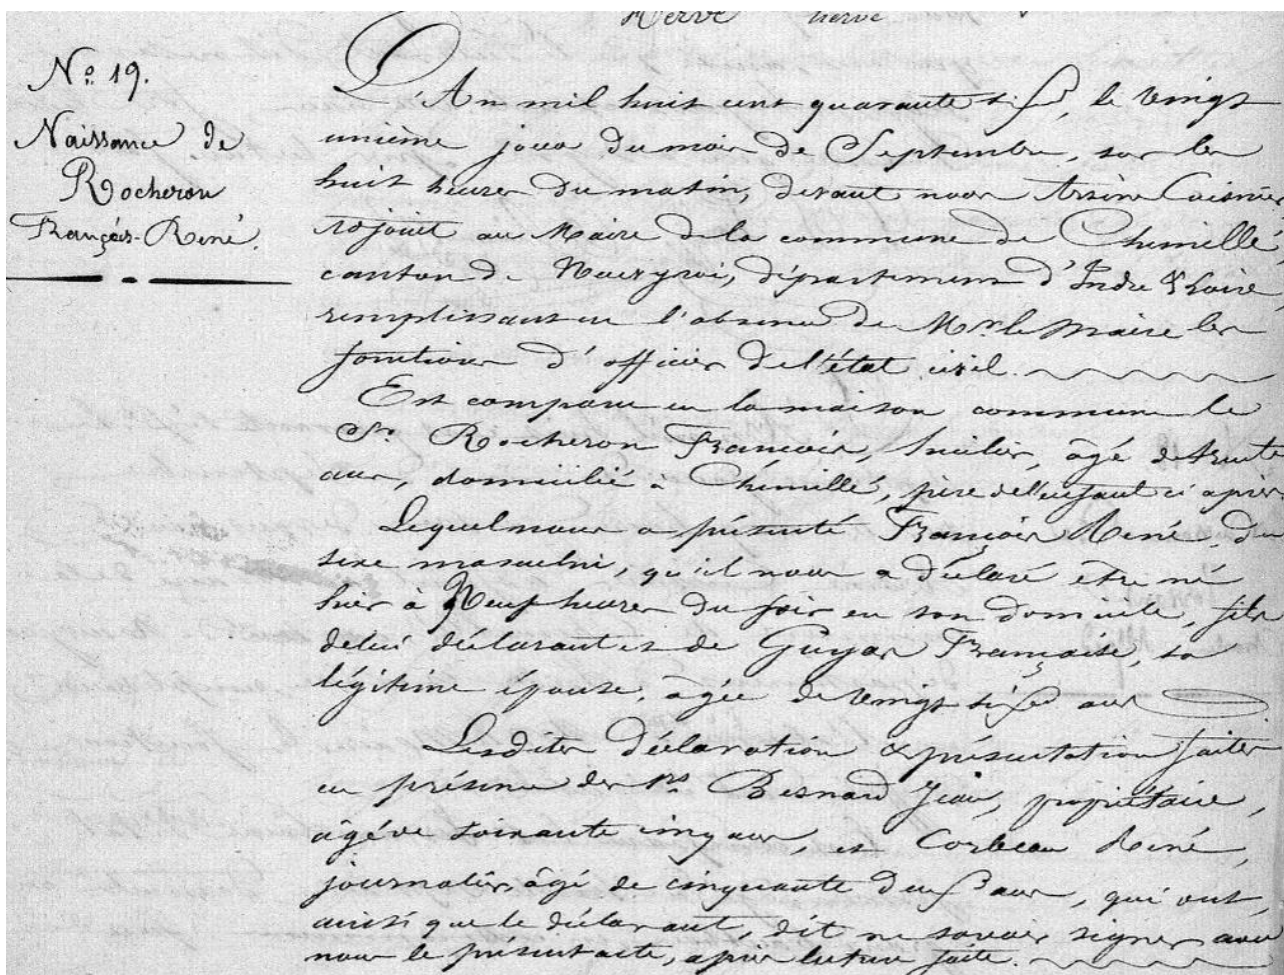 Hervé hervé
N.o 19.
Naissance de
Rocheron
François-René.
L'An mil huit cent quarante six, le vingt
unième jour du mois de Septembre, sur les
huit heures du matin, devant nous Arsène Coisnier,
adjoint au Maire de la commune de Chemillé,
canton de Neuvy roi, département d'Indre & Loire,
remplissant en l'absence de Mr. le Maire les
fonctions d'officier de l'état civil.
Est comparu en la maison commune le
Sr. Rocheron François, huilier, âgé de trente
ans, domicilié à Chemillé, père de l'enfant ci après
Lequel nous a présenté François René, du
sexe masculin, qu'il nous a déclaré etre né
hier à Neuf heures du soir en son domicile, fils
de lui déclarant et de Guyar Françoise, sa
légitime épouse, âgée de vingt six ans
Lesdites déclaration & présentation faites
en présence des Srs Besnard Jean, propriétaire,
âgé de soixante cinq ans, et Corbeau René,
journalier, âgé de cinquante deux ans, qui ont,
ainsi que le déclarant, dit ne savoir signer avec
nous le présent acte, après lecture faite.